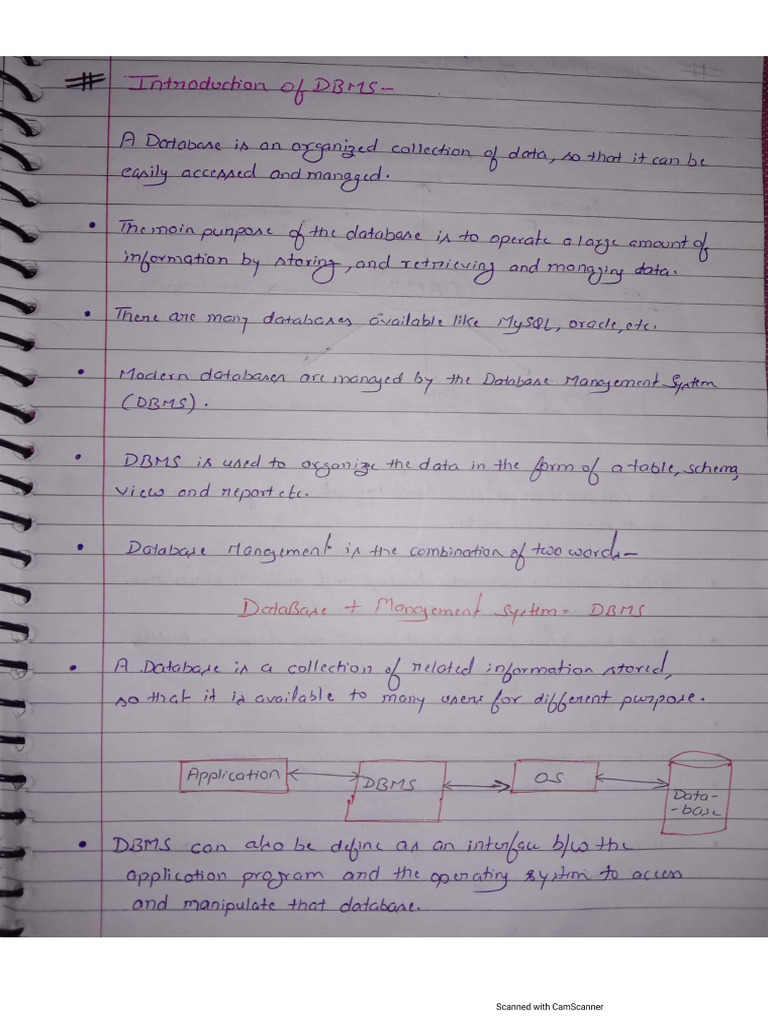 # Introduction of DBMS-
A Database is an organized collection of data, so that it can be
easily accessed and managed.
• The main purpose of the database is to operate a large amount of
information by storing, and retrieving and managing data.
• There are many databases available like MySQL, oracle, etc.
• Modern databases are managed by the Database Management System
(DBMS).
• DBMS is used to organize the data in the form of a table, schema,
view and report etc.
• Database Mangement is the combination of two words-
DataBase + Mangement System = DBMS
• A Database is a collection of related information stored,
so that it is available to many users for different purpose.
Application DBMS OS Data-
-base
• DBMS can also be define as an interface b/w the
application program and the operating system to access
and manipulate that database.
Scanned with CamScanner